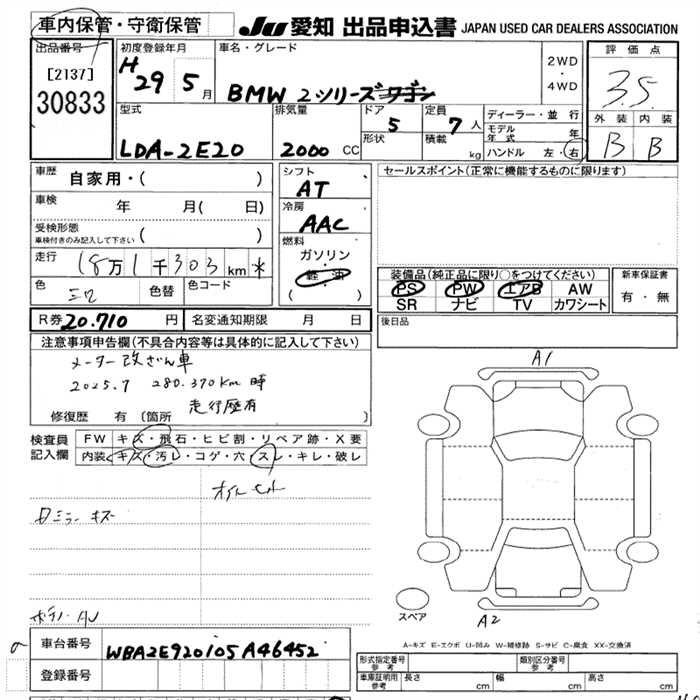 車内保管・守衛保管 JU 愛知 出品申込書 JAPAN USED CAR DEALERS ASSOCIATION
出品番号 初度登録年月 車名・グレード 評価点
[2137] H 29 5月 BMW 2シリーズ 2WD・4WD 3.5
30833
型式 排気量 ドア 定員 ディーラー・並行 外装 内装
LDA-2E20 2000 CC 5 7人 モデル年式 年 B B
形状 積載 kg ハンドル 左・右
車歴 自家用・( ) シフト AT セールスポイント(正常に機能するものに限ります)
車検 年 月( 日) 冷房 AAC
受検形態 車検付きのみ記入して下さい ( ) 燃料
走行 18万1千303km * ガソリン 軽・油 ( )
装備品(純正品に限り○をつけてください) 新車保証書
色 色替 色コード PS PW エアB AW 有・無
SR ナビ TV カワシート
R券 20.710円 名変通知期限 月 日 後日品
注意事項申告欄(不具合内容等は具体的に記入して下さい)
メーター改ざん車 A1
2025.7 280.370km時
走行歴有
修復歴 有 (箇所 )
検査員記入欄 FW キズ・飛石・ヒビ割・リペア跡・X要
内装 キズ・汚レ・コゲ・穴・スレ・キレ・破レ
ミラー キズ
スペア A2
車台番号 WBA2E920105A46452
A-キズ E-エクボ U-凹み W-補修跡 S-サビ C-腐食 XX-交換済
登録番号 型式指定番号 参考 類別区分番号 参考
車庫証明用 参考 長さ cm 幅 cm 高さ cm